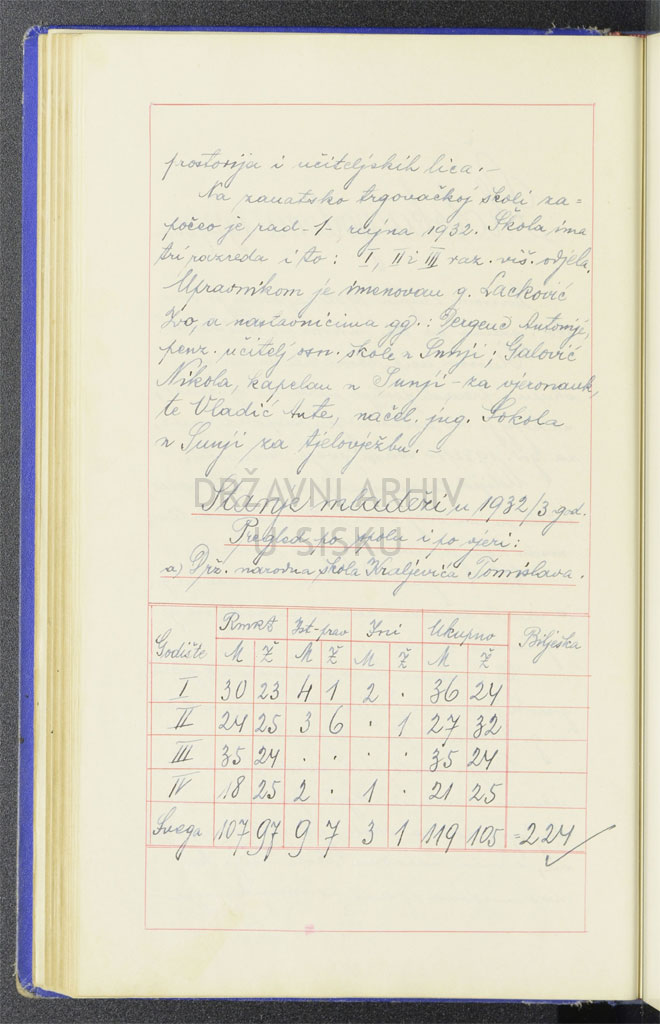 prostorija i učiteljskih lica.-
Na zanatsko trgovačkoj školi za=
počeo je rad -1- rujna 1932. Škola ima
tri razreda i to: I, II i III raz. viš. odjela.
Upravnikom je imenovan g. Lacković
Ivo, a nastavnicima gg.: Dergenc Antonij,
penz. učitelj osn. škole u Sunji; Galović
Nikola, kapelan u Sunji - za vjeronauk,
te Vladić Ante, načel. jug. Sokola
u Sunji za tjelovježbu. -
DRŽAVNI ARHIV
U SISKU
Stanje mladeži u 1932/3 g-d.
Pregled po spolu i po vjeri:
a) Drž. narodna škola Kraljevića Tomislava.
Godište Rmkt Ist-prav Ini Ukupno Bilješka
M Ž M Ž M Ž M Ž
I 30 23 4 1 2 . 36 24
II 24 25 3 6 . 1 27 32
III 35 24 . . . . 35 24
IV 18 25 2 . 1 . 21 25
Svega 107 97 9 7 3 1 119 105 =224